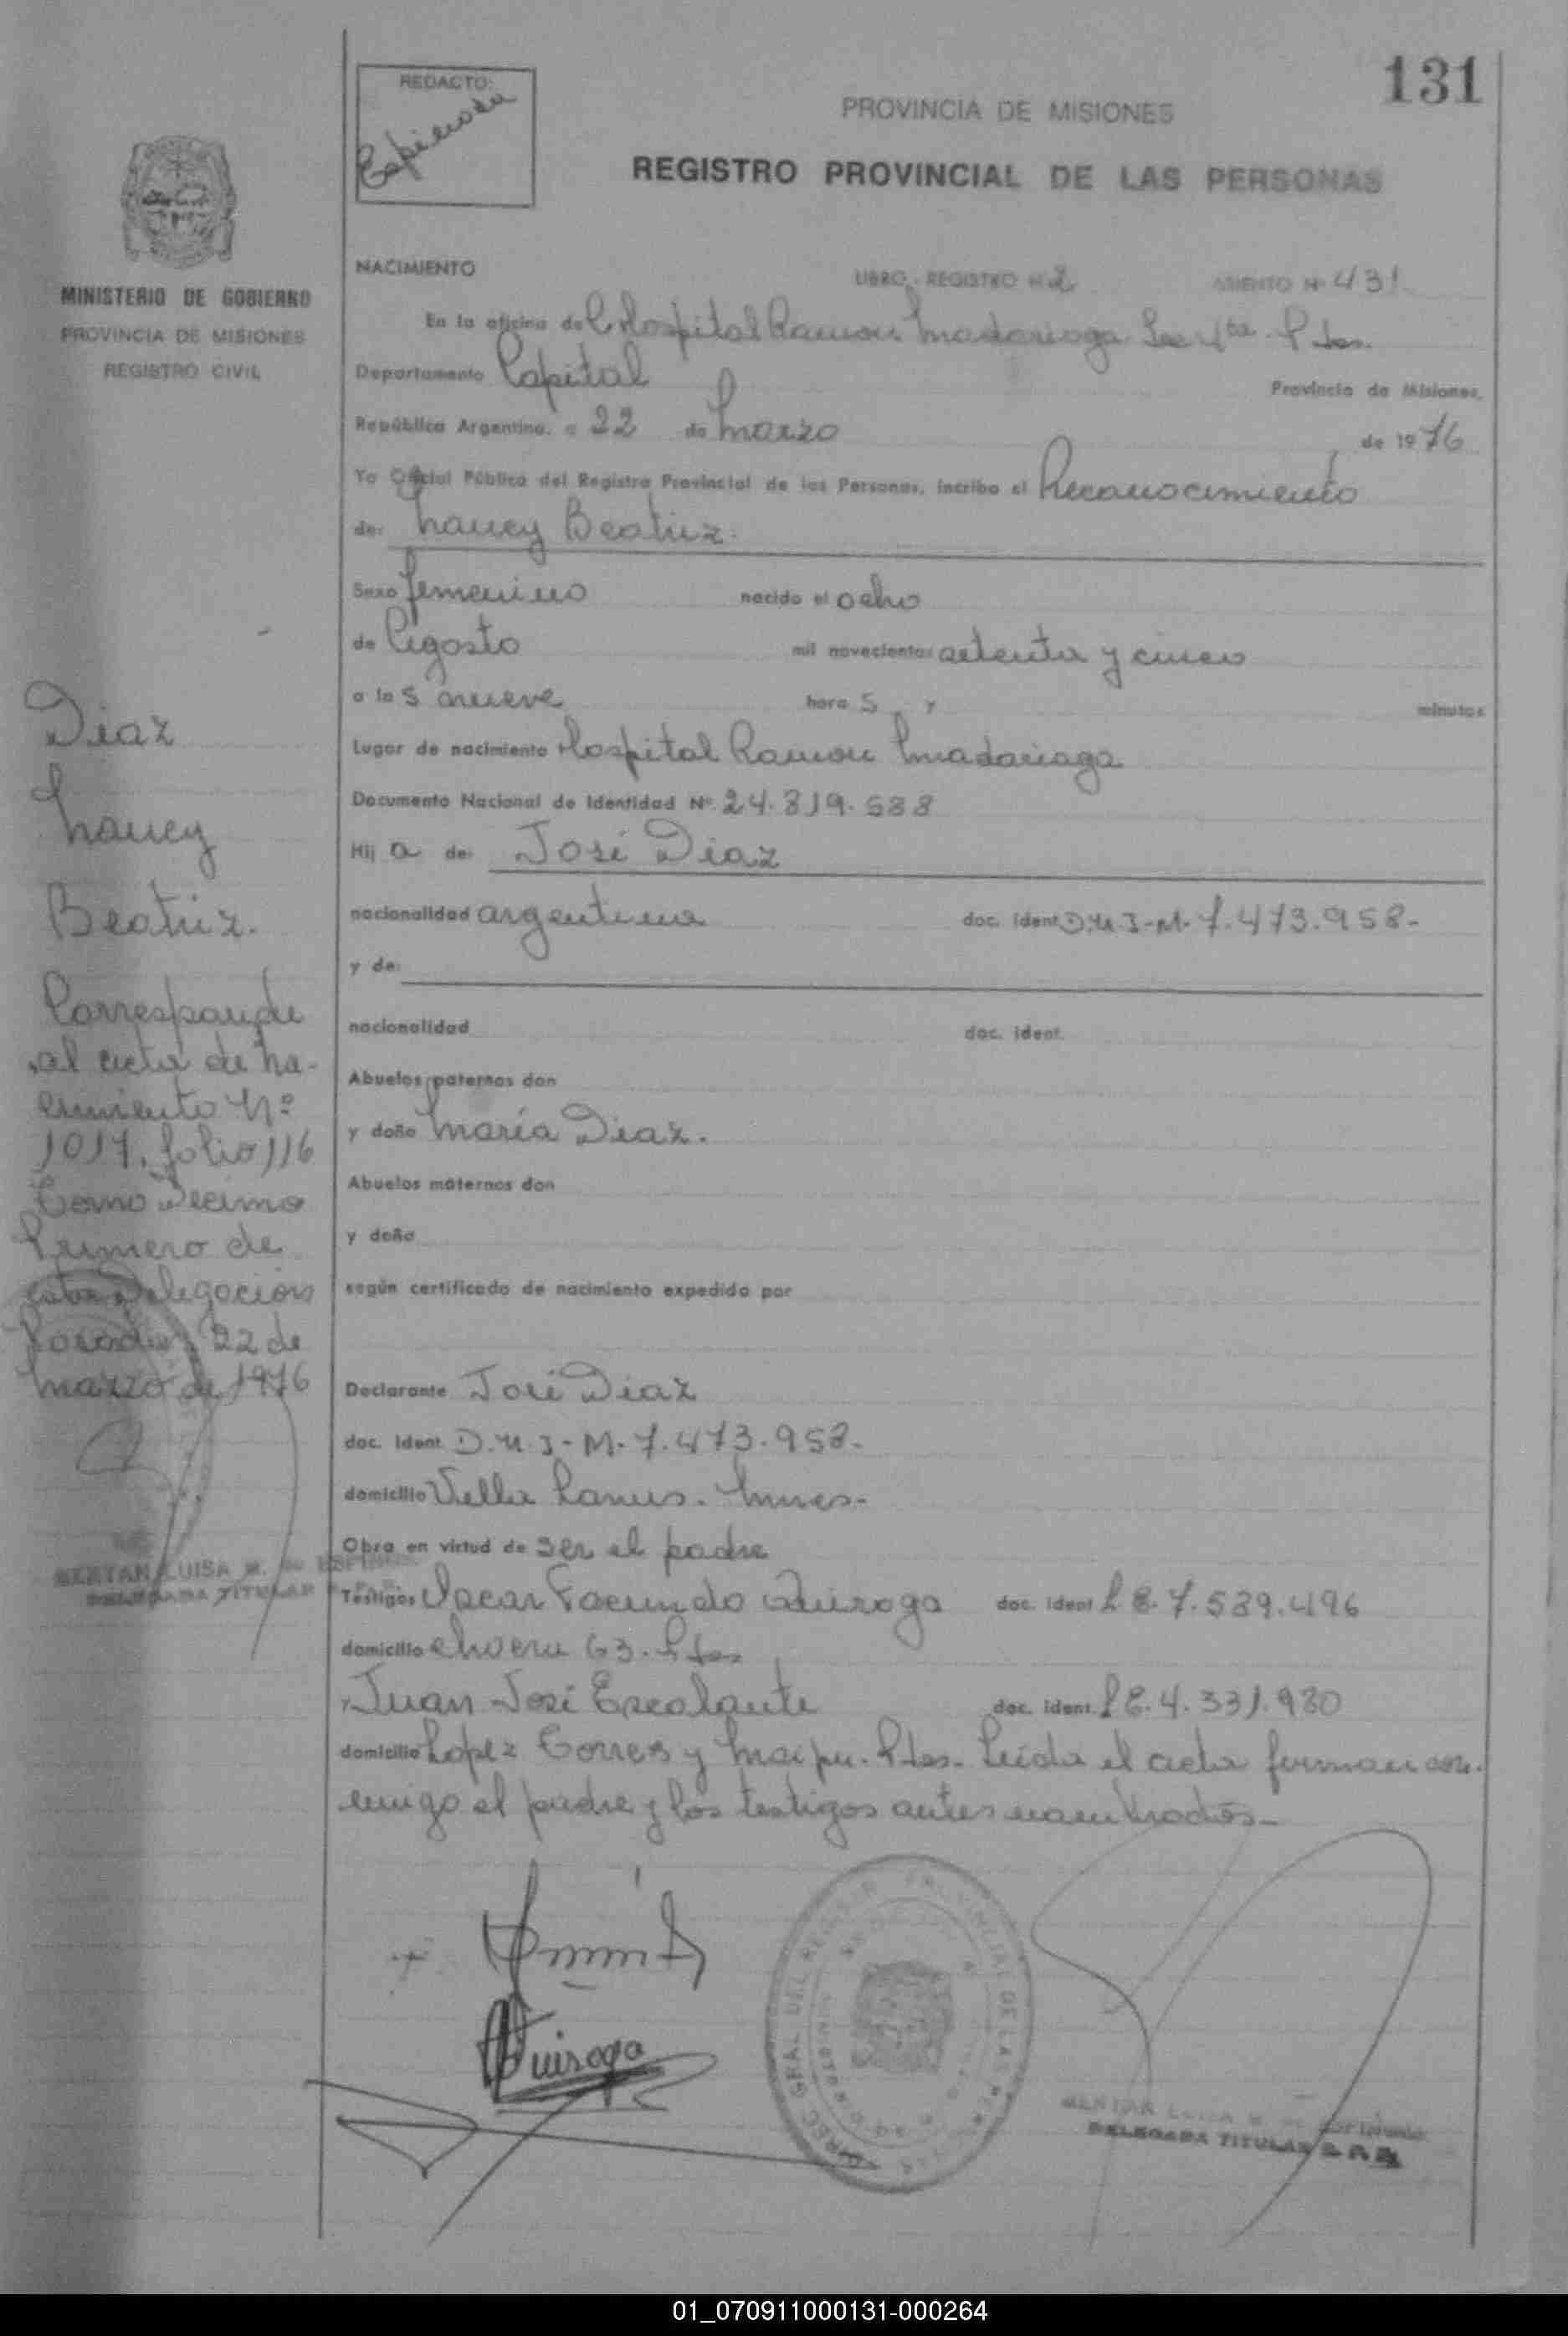 131
REDACTO:
PROVINCIA DE MISIONES
REGISTRO PROVINCIAL DE LAS PERSONAS
MINISTERIO DE GOBIERNO
PROVINCIA DE MISIONES
REGISTRO CIVIL
NACIMIENTO LIBRO - REGISTRO Nº 2 ASIENTO Nº 431
En la oficina del Hospital Ramon Madariaga Pdas.
Departamento Capital Provincia de Misiones,
República Argentina, a 22 de Marzo de 1976
Yo Oficial Público del Registro Provincial de las Personas, incribo el Reconocimiento
de: Nancy Beatriz.
Sexo femenino nacido el ocho
de Agosto mil novecientos setenta y cinco
a las nueve horas y minutos
Lugar de nacimiento Hospital Ramon Madariaga
Documento Nacional de Identidad Nº 24.819.588
Hija de: José Diaz
nacionalidad argentina doc. ident. D.N.I-M-7.473.958-
y de:
nacionalidad doc. ident.
Abuelos paternos don
y doña María Diaz.
Abuelos maternos don
y doña
según certificado de nacimiento expedido por
Declarante José Diaz
doc. ident. D.N.I-M-7.473.958-
domicilio Villa Lanus. Mnes-
Obra en virtud de ser el padre
Testigos Oscar Facundo Quiroga doc. ident L.E.7.539.496
domicilio 63. Pdas
Juan José Escalante doc. ident. L.E.4.331.980
domicilio Lopez Torres y Maipu. Pdas- Leida el acta firman con-
migo el padre y los testigos antes nombrados-
Diaz
Nancy
Beatriz.
Corresponde
al acta de Na-
cimiento Nº
1017. folio 116
Tomo Decimo
Primero de
esta Delegación
Posadas, 22 de
Marzo de 1976
BERTAN LUISA M. de
DELEGADA TITULAR
Quiroga
DIREC. GRAL. DEL REGISTRO PROVINCIAL DE LAS PERSONAS
DELEGADA TITULAR
01_070911000131-000264